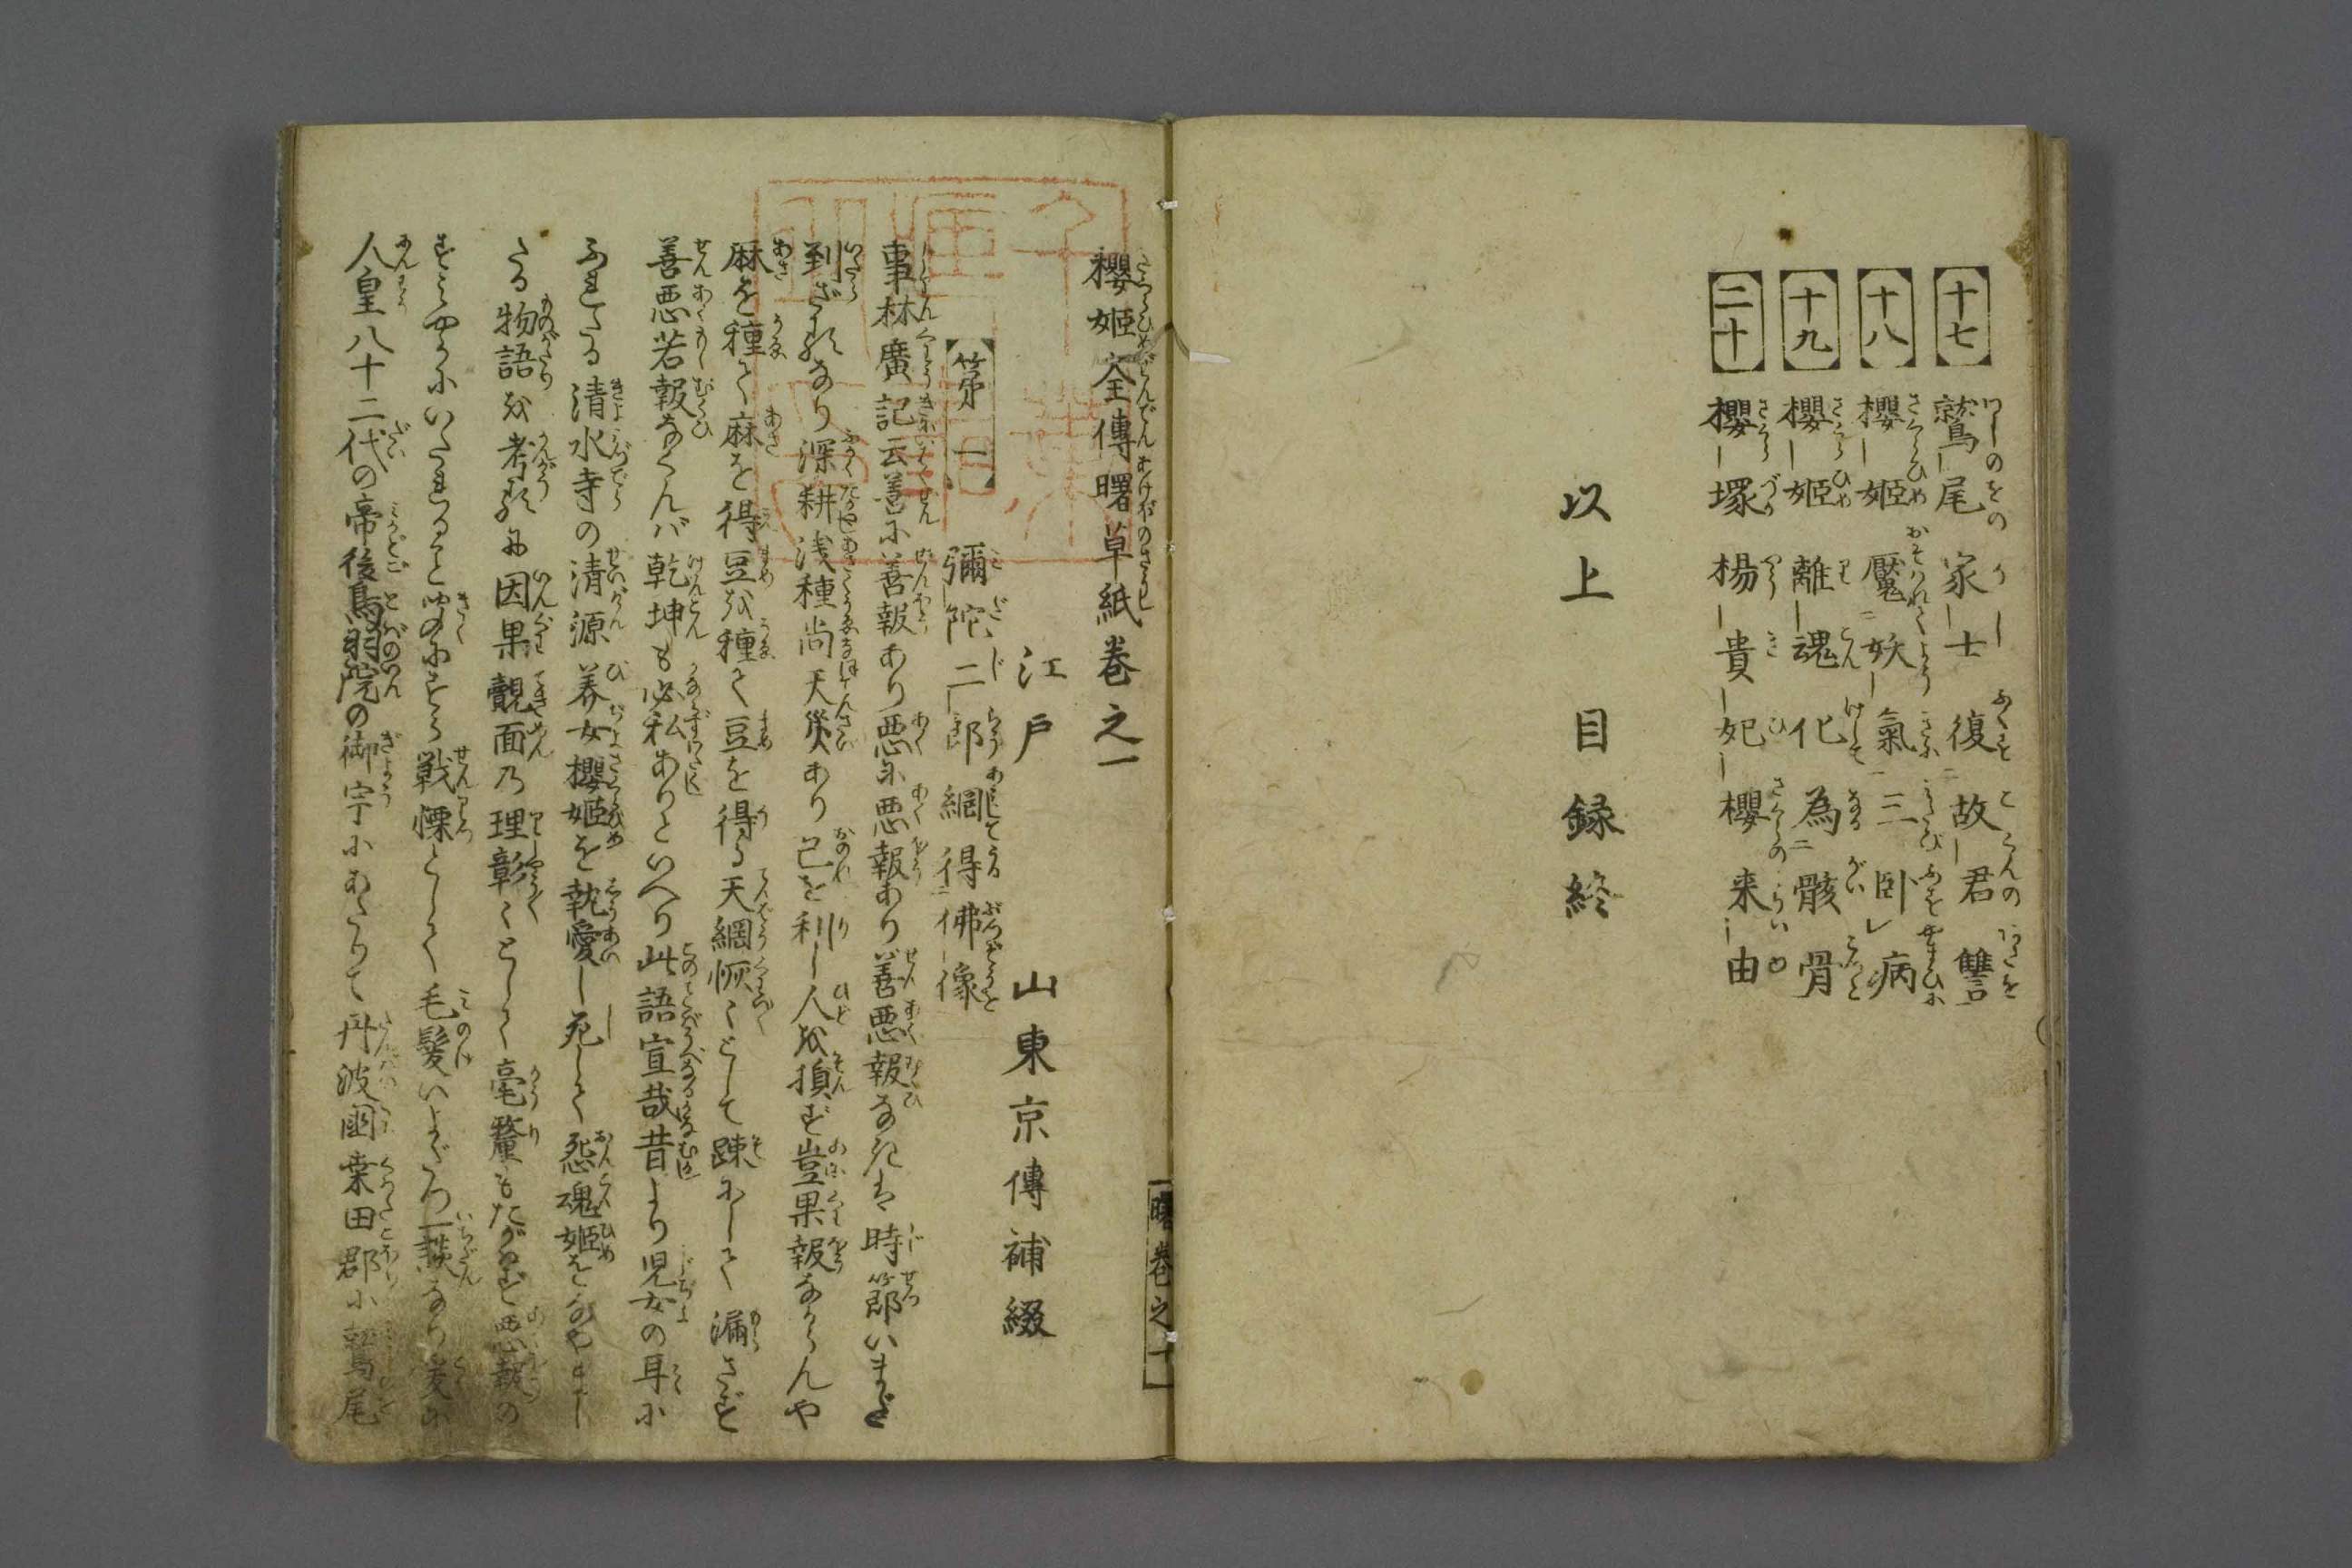 十七 鷲尾家士復故君讐
十八 櫻姫魘妖氣三卧病
十九 櫻姫離魂化為骸骨
二十 櫻塚楊貴妃櫻来由
以上 目録終
曙巻之一
櫻姫全傳曙草紙巻之一
江戸 山東京傳補綴
第一 彌陀二郎網得佛像
事林廣記云善に善報あり悪に悪報あり善悪報なきは時節いまだ
到ざるなり深耕浅種尚天災あり己を利し人を損ず豈果報なからんや
麻を種て麻を得豆を種て豆を得る天網恢々として踈にして漏さず
善悪若報なくんバ乾坤も必私ありといへり此語宜哉昔より児女の耳に
ふれたる清水寺の清源美女櫻姫を執愛し死して怨魂姫をなやまし
たる物語を考るに因果覿面乃理彰々として毫釐もたがはず悪報の
すみやかにいたれること聞に戦慄として毛髪いよだつ一談なり爰に
人皇八十二代の帝後鳥羽院の御宇にあたりて丹波國桒田郡に鷲尾